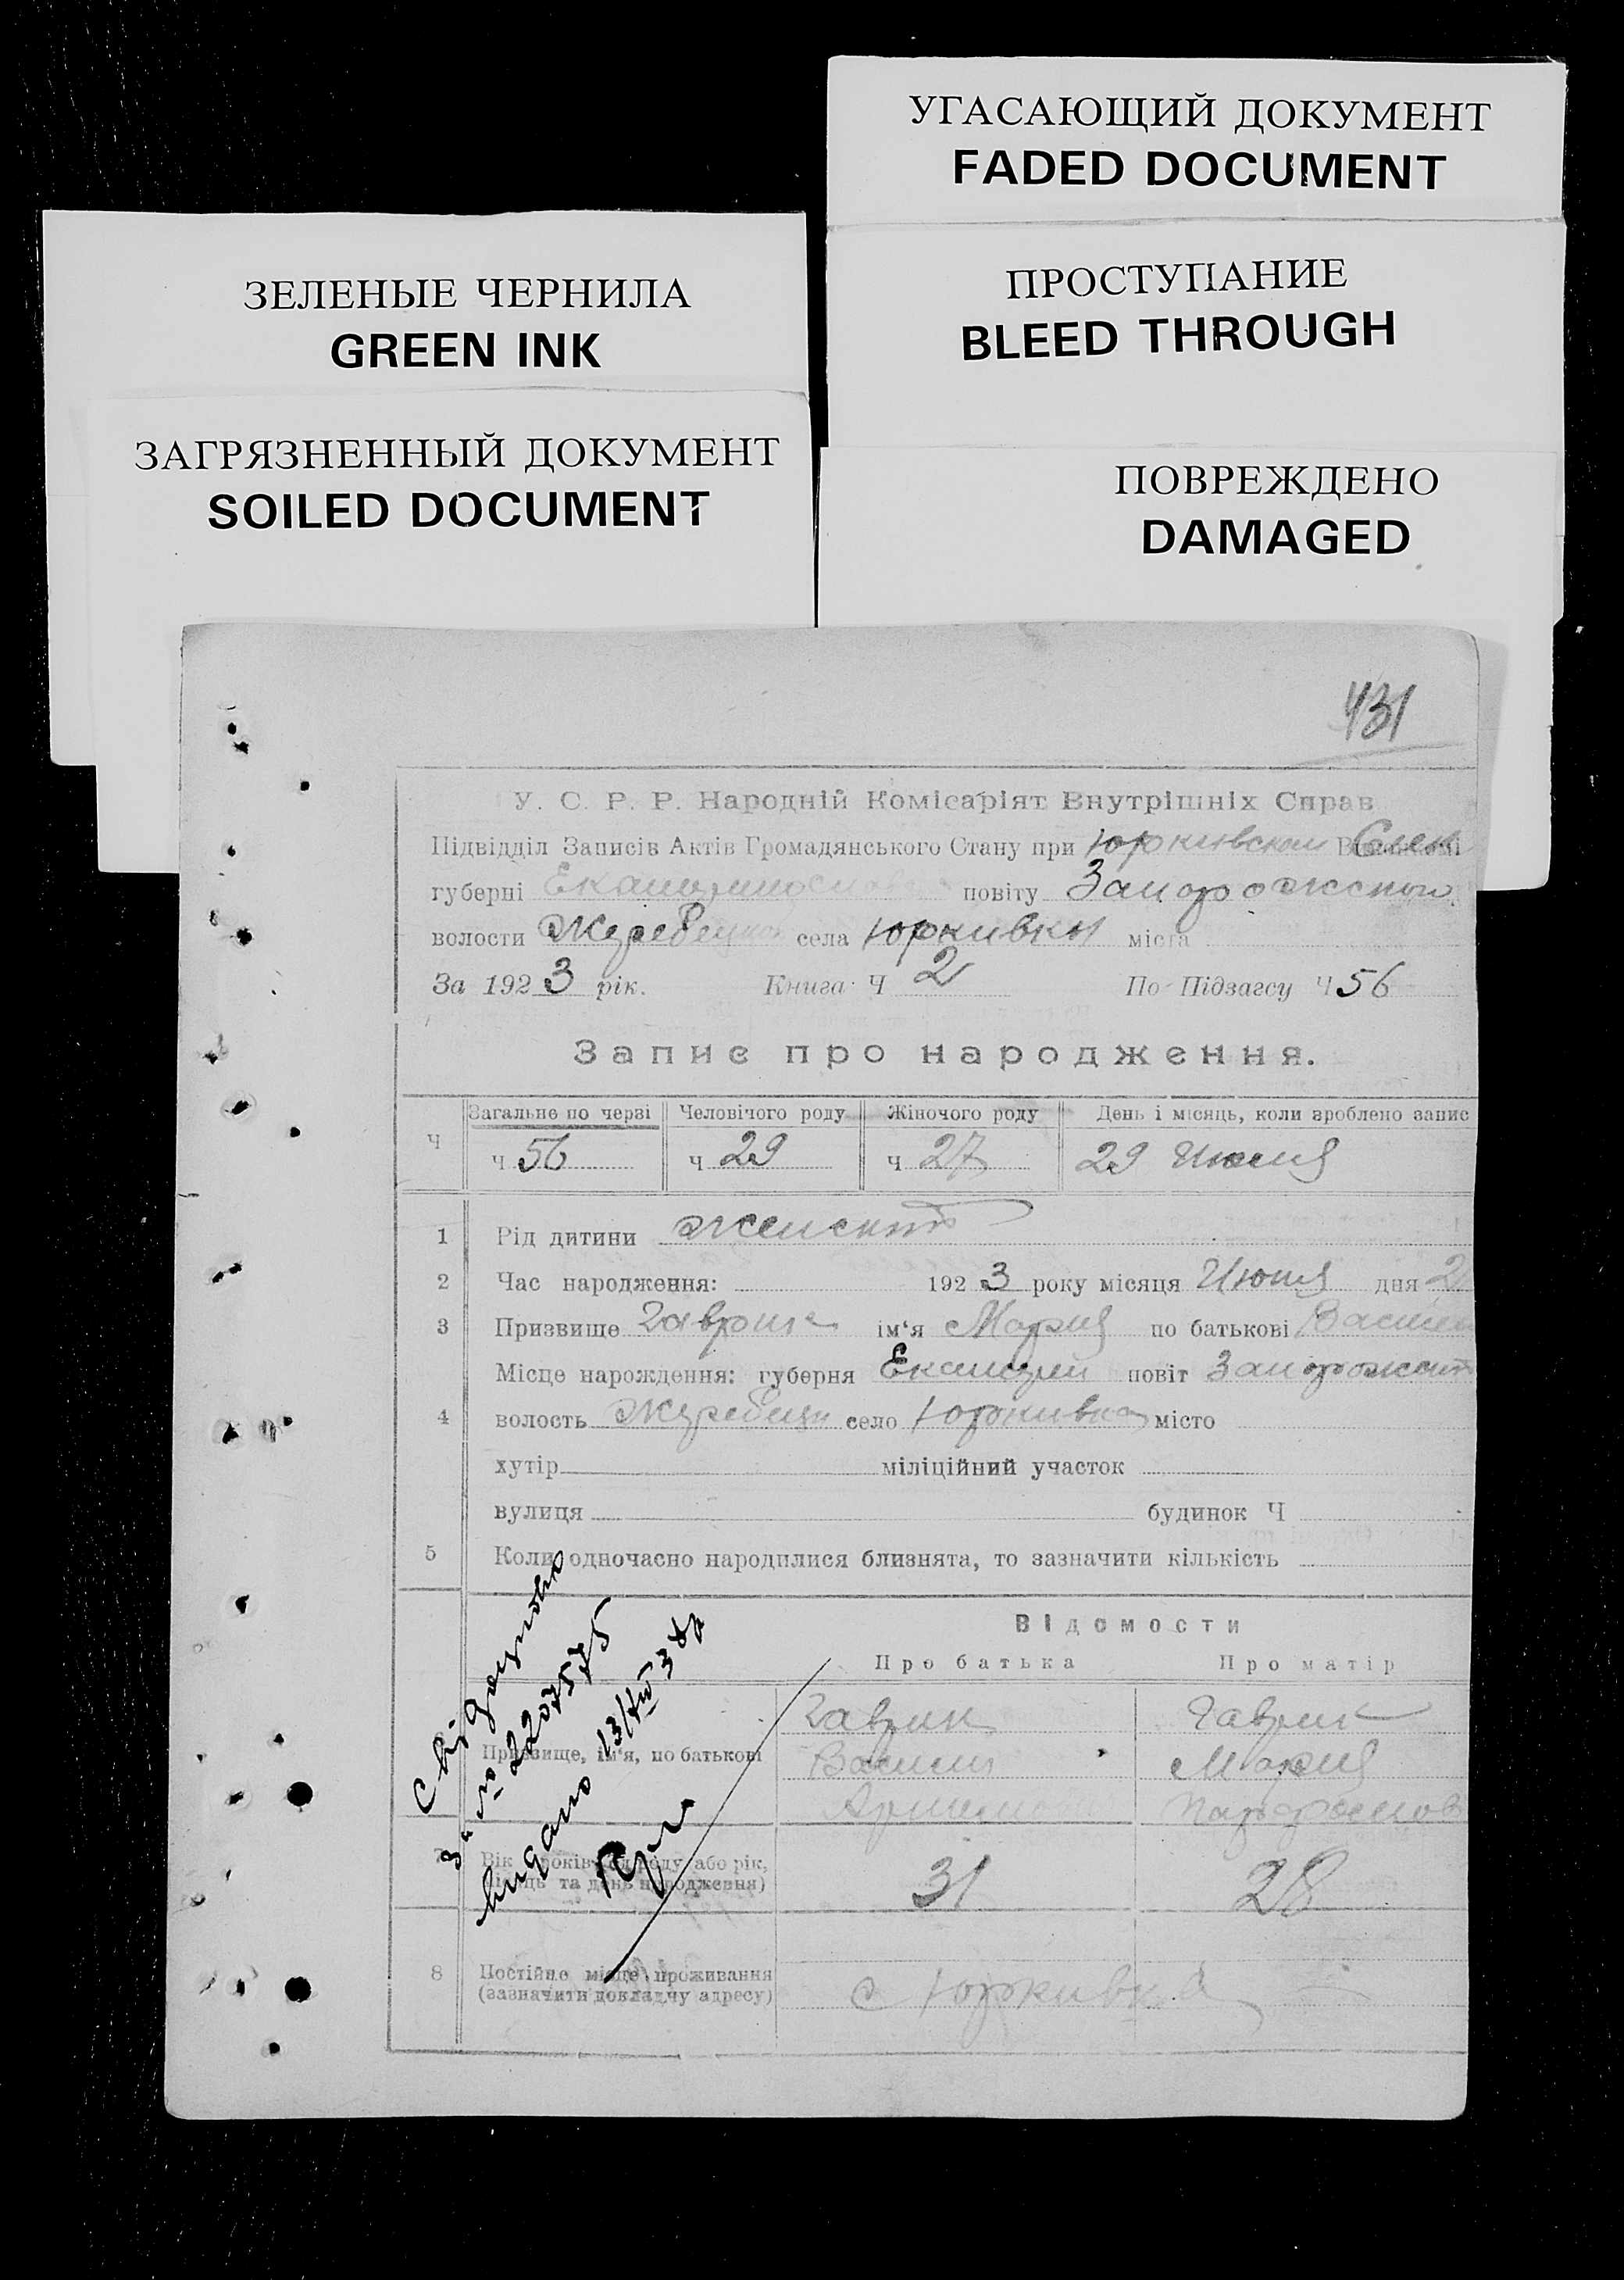 УГАСАЮЩИЙ ДОКУМЕНТ
FADED DOCUMENT
ПРОСТУПАНИЕ
BLEED THROUGH
ЗЕЛЕНЫЕ ЧЕРНИЛА
GREEN INK
ЗАГРЯЗНЕННЫЙ ДОКУМЕНТ
SOILED DOCUMENT
ПОВРЕЖДЕНО
DAMAGED
431
У. С. Р. Р. Народній Комісаріят Внутрішніх Справ
Підвідділ Записів Актів Громадянського Стану при Юркивском
губерні Екатеринослав повіту Запорожского
волости Жеребецкой села Юркивки міста
За 1923 рік. Книга Ч 2 По Підзагсу Ч 56
Запис про народження.
Загальне по черзі Человічого роду Жіночого роду День і місяць, коли зроблено запис
Ч Ч 56 Ч 29 Ч 27 29 Июня
1 Рід дитини женский
2 Час народження: 1923 року місяця Июня дня 2
3 Призвище Гаврик ім'я Мария по батькові Васил
Місце народження: губерня Екатерин повіт Запорожский
4 волость Жеребецк село Юркивка місто
хутір міліційний участок
вулиця будинок Ч
5 Коли одночасно народилися близнята, то зазначити кількість
Відомости
Про батька Про матір
Гаврик Гаврик
Призвище, ім'я, по батькові Васили Мария
Артемов Парфенов
7 Вік (років від роду або рік, місяць та день народження) 31 28
8 Постійне місце проживання
(зазначити докладну адресу) с Юркивка
Свідоцтво
за № 2207575
видано 13/